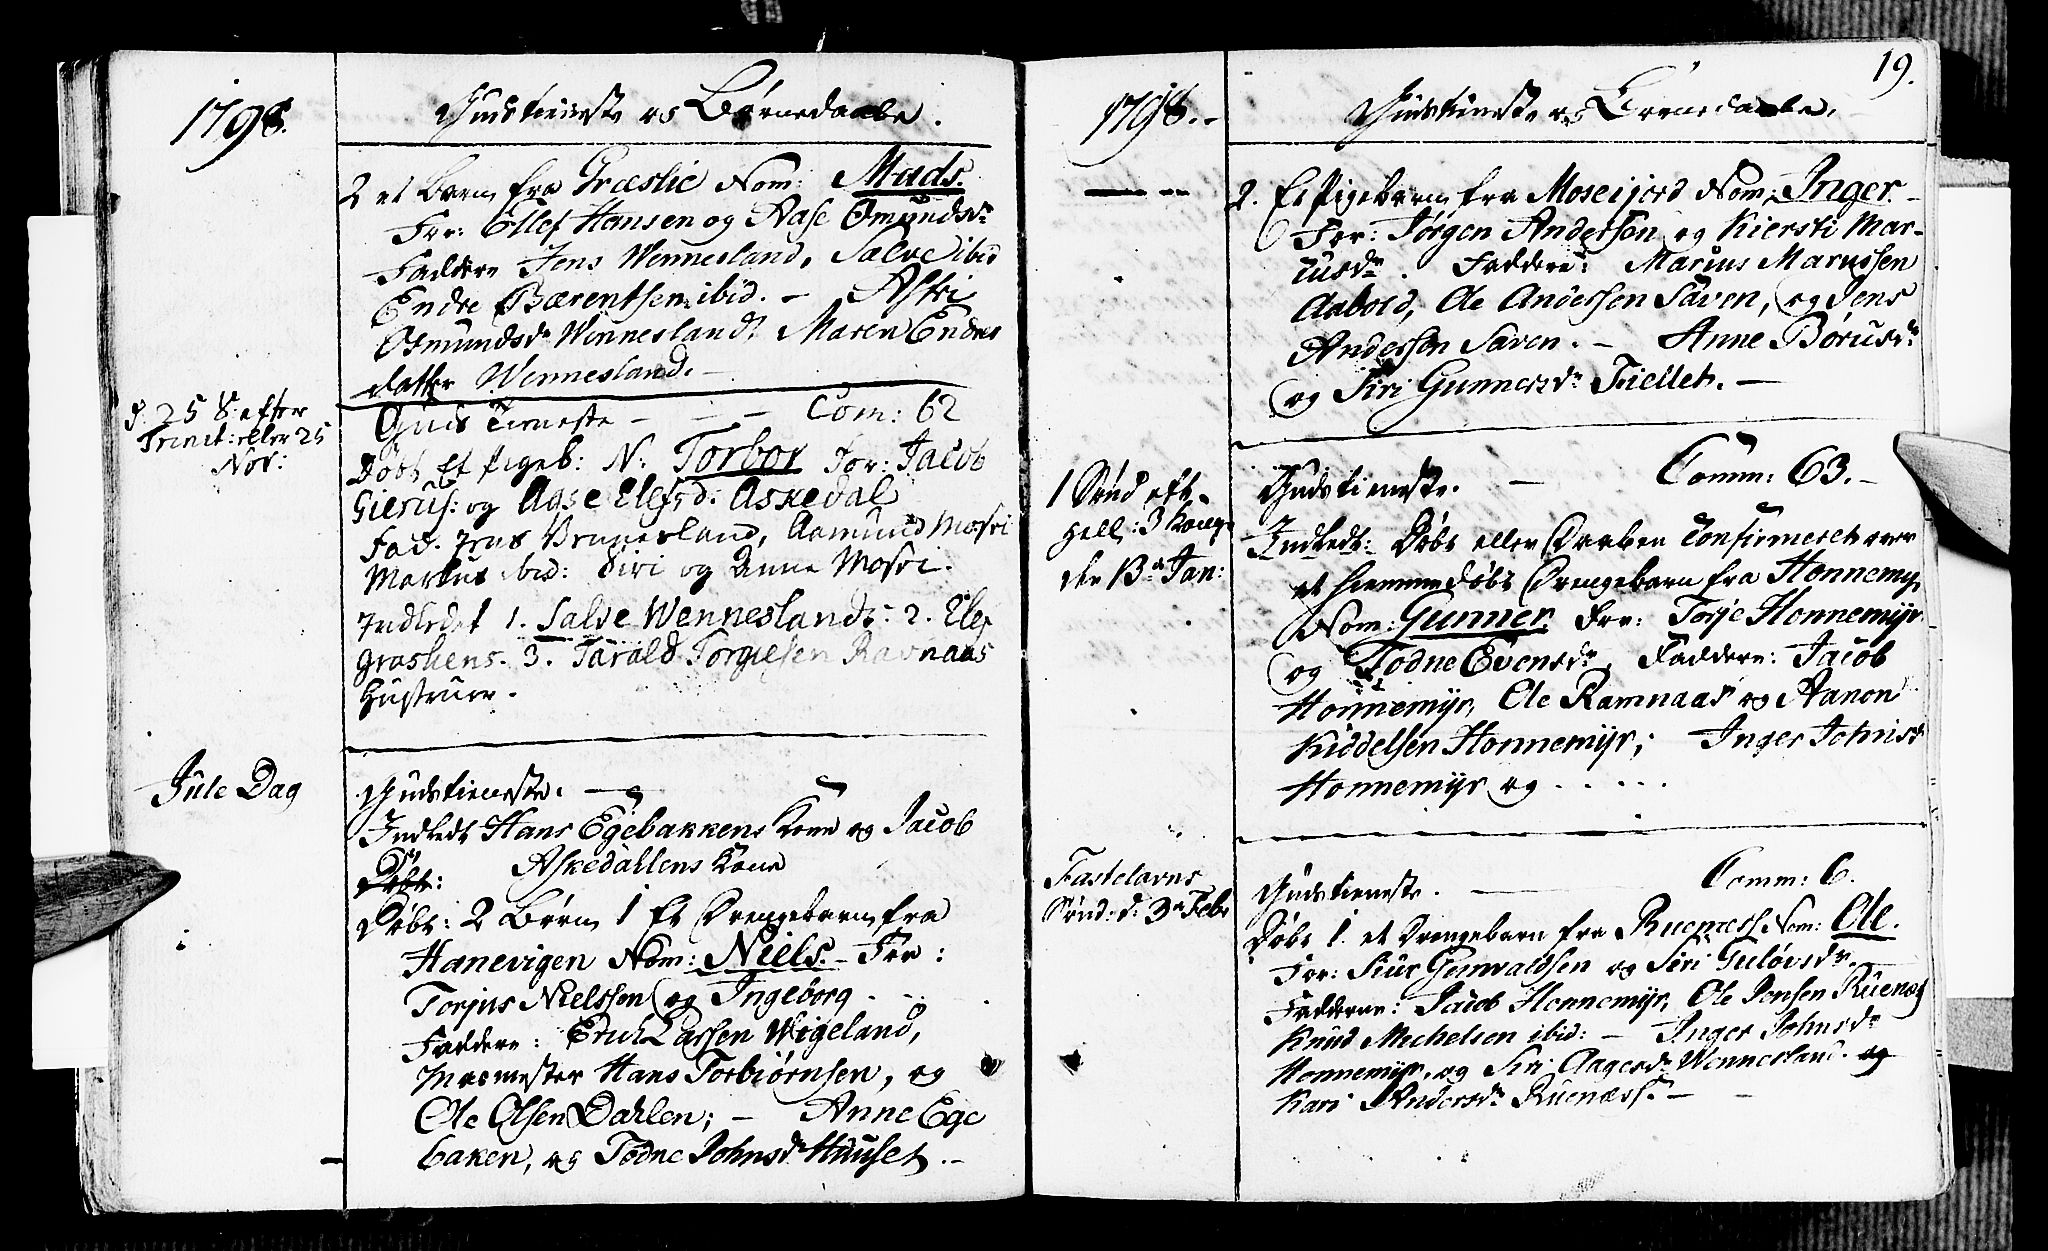 1798.
Gudstieneste og Børnedaabe.
2 et Barn fra Græslie Nom: Mads.
For: Ellef Hansen og Aase Omundsdr
Faddere Jens Wennesland, Salve ibid
Endre Bærentsen ibid. - Astri
Osmundsdr Wennesland, Maren Endres
datter Wennesland. -
d. 25 S: efter
Trinit: eller 25
Nov:
Guds Tieneste - - - Com: 62
Døbt Et Pigeb: N: Torbor For: Jacob
Gierus: og Aase Elefsd: Askedal
Fad. Jens Vennesland, Aamund Mosvi
Markus ibid: Siri og Anne Mosvi.
Indledet 1. Salve Wenneslands: 2. Elef
Grasliens. 3. Tarald Torgiesen Ravnaas
Hustruer.
Jule Dag
Gudstieneste. -
Indledt Hans Egebakkens Kone og Jacob
Døbt: Askedahlens Kone
Døbt: 2 Børn 1 Et Drengebarn fra
Hanevigen Nom: Niels. - For:
Torjus Nielssen og Ingeborg - - .
Faddere: Erich Larssen Wigeland,
Hans Torbiørnsen, og
Ole Olsen Dahlen; - Anne Ege
baken, og Todne Johnsdr Huuset. -
19.
1798. -
Gudstieneste og Børnedaabe.
2. Et Pigebarn fra Moseijord Nom: Inger. -
For: Jørgen Anderson og Kiersti Mar-
cusdr. Faddere: Marius Marussen
Aabold, Ole Anderssen Saven, og Jens
Andersson Saven. - Anne Børusdr
og Siri Gunnersdr Fiellet. -
1 Sønd eft.
Hell: 3 Konge
den 13de Jan:
Gudstieneste. - Comm: 63. -
Indledt: Døbt eller Daaben Confirmeret over
et hiemmedøbt Drengebarn fra Honnemyr
Nom: Gunner. For: Torje Honnemyr
og Todne Evensdr, Faddere: Jacob
Honnemyr, Ole Ramnaas og Aanon
Kiddelsen Honnemyr; Inger Johnsdr
Honnemyr og . . . . .
Fastelavns
Sønd: d: 3de Febr
Gudstieneste. - Comm: 6.
Døbt 1. et Drengebarn fra Ruenæss Nom: Ole.
For: Siur Gunvaldsen og Siri Guløvsdr.
Fadderne: Jacob Honnemyr, Ole Jensen Ruenæs
Knud Michelsen ibid: - Inger Johnsdr
Honnemyr, og Siri Aagesdr Wennesland. og
Kari Andersdr Ruenæss. - -